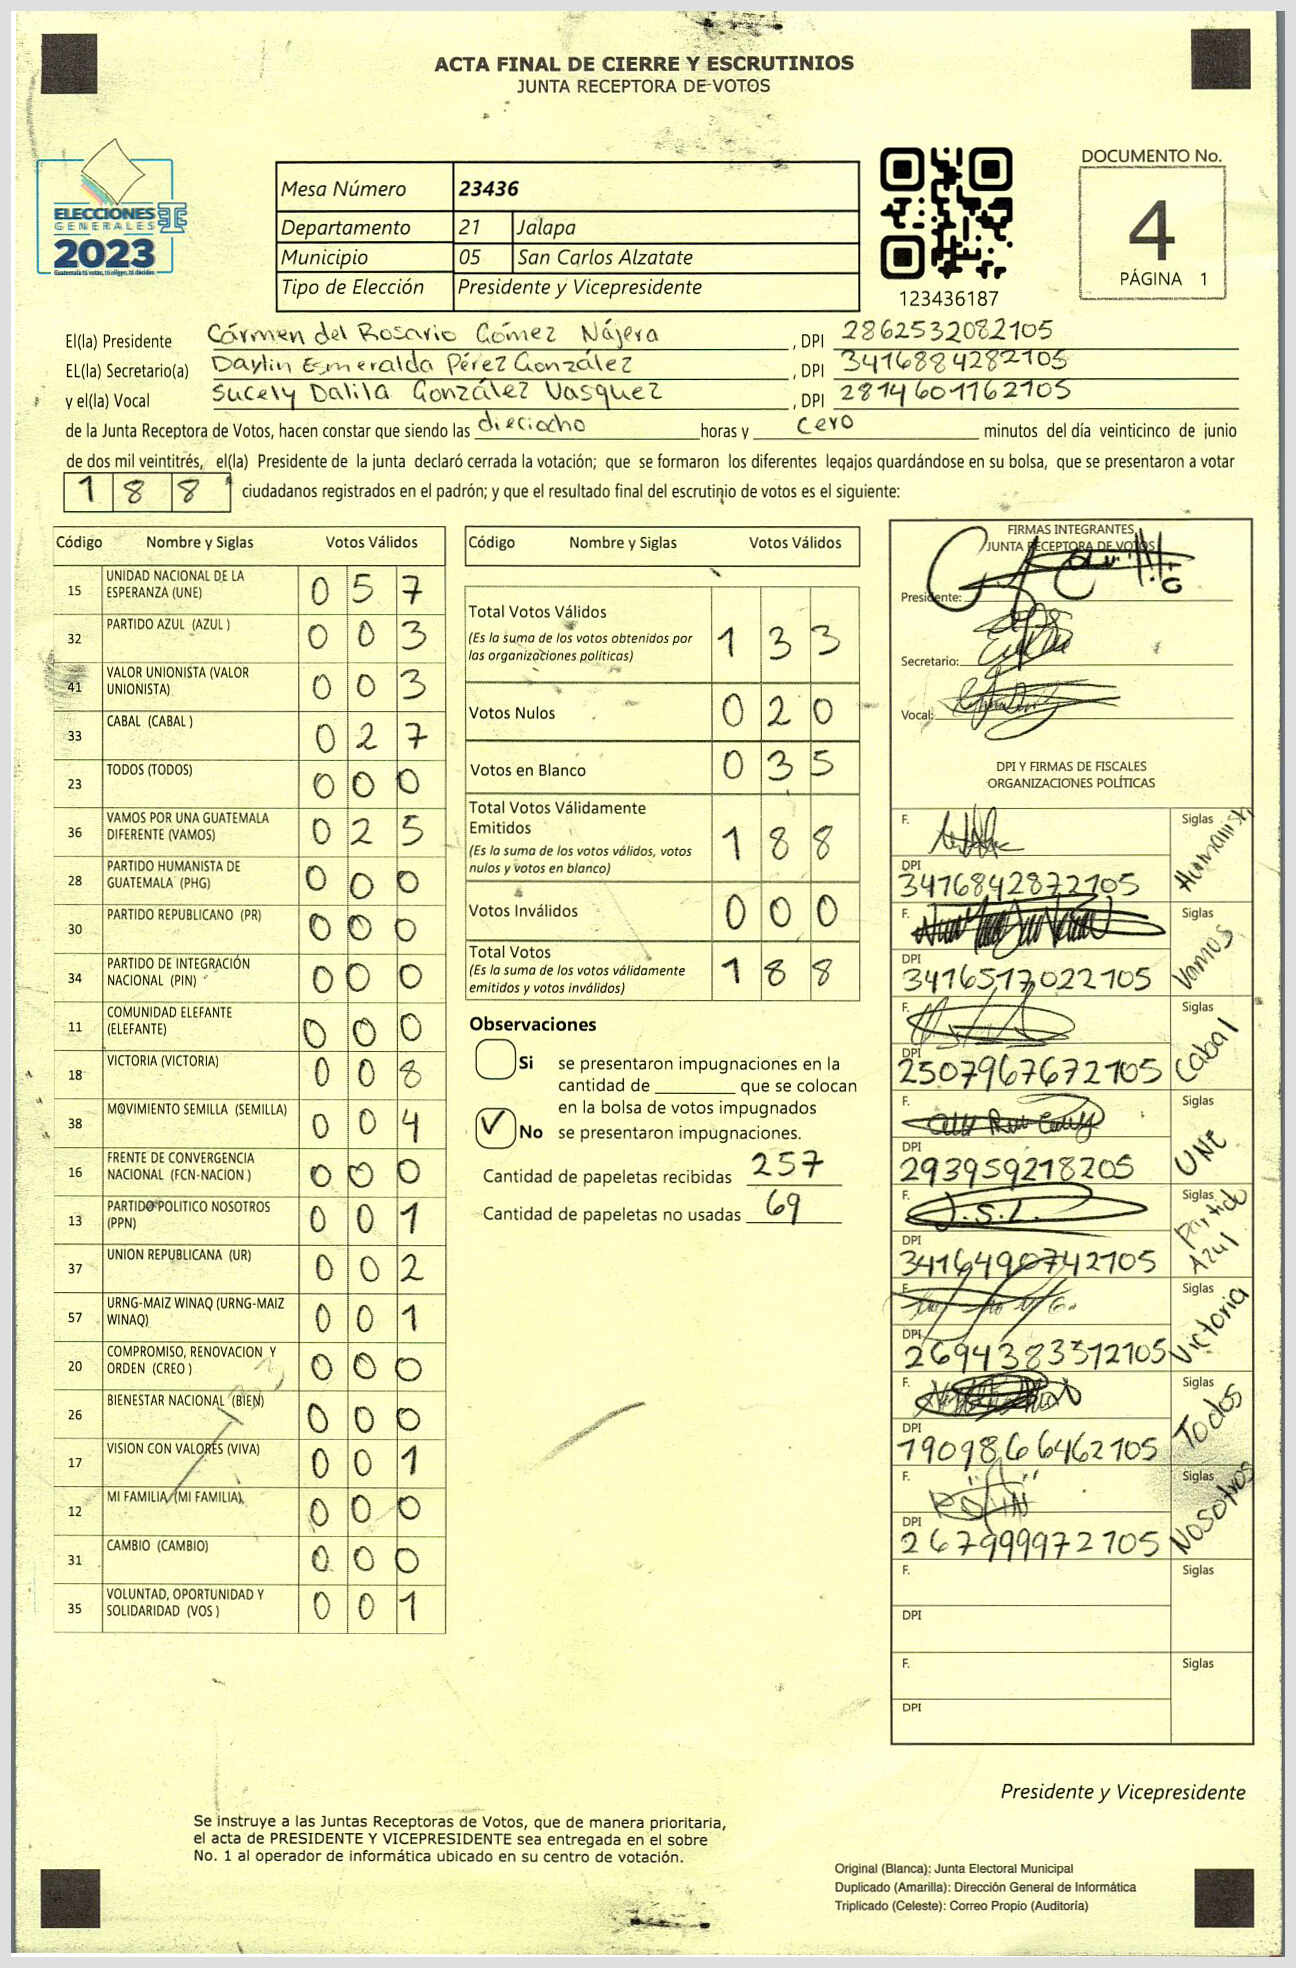 ACTA FINAL DE CIERRE Y ESCRUTINIOS
JUNTA RECEPTORA DE VOTOS
ELECCIONES
GENERALES
2023
Guatemala tú votas, tú eliges, tú decides
Mesa Número 23436
Departamento 21 Jalapa
Municipio 05 San Carlos Alzatate
Tipo de Elección Presidente y Vicepresidente
123436187
DOCUMENTO No.
4
PÁGINA 1
El(la) Presidente Cármen del Rosario Gómez Nájera, DPI 2862532082105
EL(la) Secretario(a) Daylin Esmeralda Pérez González, DPI 3416884282105
y el(la) Vocal Sucely Dalila González Vasquez, DPI 2814601162105
de la Junta Receptora de Votos, hacen constar que siendo las dieciocho horas y cero minutos del día veinticinco de junio
de dos mil veintitrés, el(la) Presidente de la junta declaró cerrada la votación; que se formaron los diferentes legajos guardándose en su bolsa, que se presentaron a votar
188 ciudadanos registrados en el padrón; y que el resultado final del escrutinio de votos es el siguiente:
Código Nombre y Siglas Votos Válidos
15 UNIDAD NACIONAL DE LA ESPERANZA (UNE) 0 5 7
32 PARTIDO AZUL (AZUL ) 0 0 3
41 VALOR UNIONISTA (VALOR UNIONISTA) 0 0 3
33 CABAL (CABAL ) 0 2 7
23 TODOS (TODOS) 0 0 0
36 VAMOS POR UNA GUATEMALA DIFERENTE (VAMOS) 0 2 5
28 PARTIDO HUMANISTA DE GUATEMALA (PHG) 0 0 0
30 PARTIDO REPUBLICANO (PR) 0 0 0
34 PARTIDO DE INTEGRACIÓN NACIONAL (PIN) 0 0 0
11 COMUNIDAD ELEFANTE (ELEFANTE) 0 0 0
18 VICTORIA (VICTORIA) 0 0 8
38 MOVIMIENTO SEMILLA (SEMILLA) 0 0 4
16 FRENTE DE CONVERGENCIA NACIONAL (FCN-NACION ) 0 0 0
13 PARTIDO POLITICO NOSOTROS (PPN) 0 0 1
37 UNION REPUBLICANA (UR) 0 0 2
57 URNG-MAIZ WINAQ (URNG-MAIZ WINAQ) 0 0 1
20 COMPROMISO, RENOVACION Y ORDEN (CREO ) 0 0 0
26 BIENESTAR NACIONAL (BIEN) 0 0 0
17 VISION CON VALORES (VIVA) 0 0 1
12 MI FAMILIA (MI FAMILIA) 0 0 0
31 CAMBIO (CAMBIO) 0 0 0
35 VOLUNTAD, OPORTUNIDAD Y SOLIDARIDAD (VOS ) 0 0 1
Código Nombre y Siglas Votos Válidos
Total Votos Válidos 1 3 3
(Es la suma de los votos obtenidos por
las organizaciones políticas)
Votos Nulos 0 2 0
Votos en Blanco 0 3 5
Total Votos Válidamente
Emitidos 1 8 8
(Es la suma de los votos válidos, votos
nulos y votos en blanco)
Votos Inválidos 0 0 0
Total Votos 1 8 8
(Es la suma de los votos válidamente
emitidos y votos inválidos)
Observaciones
Si se presentaron impugnaciones en la
cantidad de ________ que se colocan
en la bolsa de votos impugnados
No se presentaron impugnaciones.
Cantidad de papeletas recibidas 257
Cantidad de papeletas no usadas 69
FIRMAS INTEGRANTES
JUNTA RECEPTORA DE VOTOS
Presidente:
Secretario:
Vocal:
DPI Y FIRMAS DE FISCALES
ORGANIZACIONES POLÍTICAS
F. Siglas Humanista
DPI 3416842872105
F. Siglas Vamos
DPI 3416517022105
F. Siglas Cabal
DPI 2507967672105
F. Siglas UNE
DPI 293959218205
F. J.S.L. Siglas Partido Azul
DPI 3416490742105
F. Siglas Victoria
DPI 2694383512105
F. Siglas Todos
DPI 1909866462105
F. Siglas Nosotros
DPI 267999972105
F. Siglas
DPI
F. Siglas
DPI
Presidente y Vicepresidente
Se instruye a las Juntas Receptoras de Votos, que de manera prioritaria,
el acta de PRESIDENTE Y VICEPRESIDENTE sea entregada en el sobre
No. 1 al operador de informática ubicado en su centro de votación.
Original (Blanca): Junta Electoral Municipal
Duplicado (Amarilla): Dirección General de Informática
Triplicado (Celeste): Correo Propio (Auditoría)